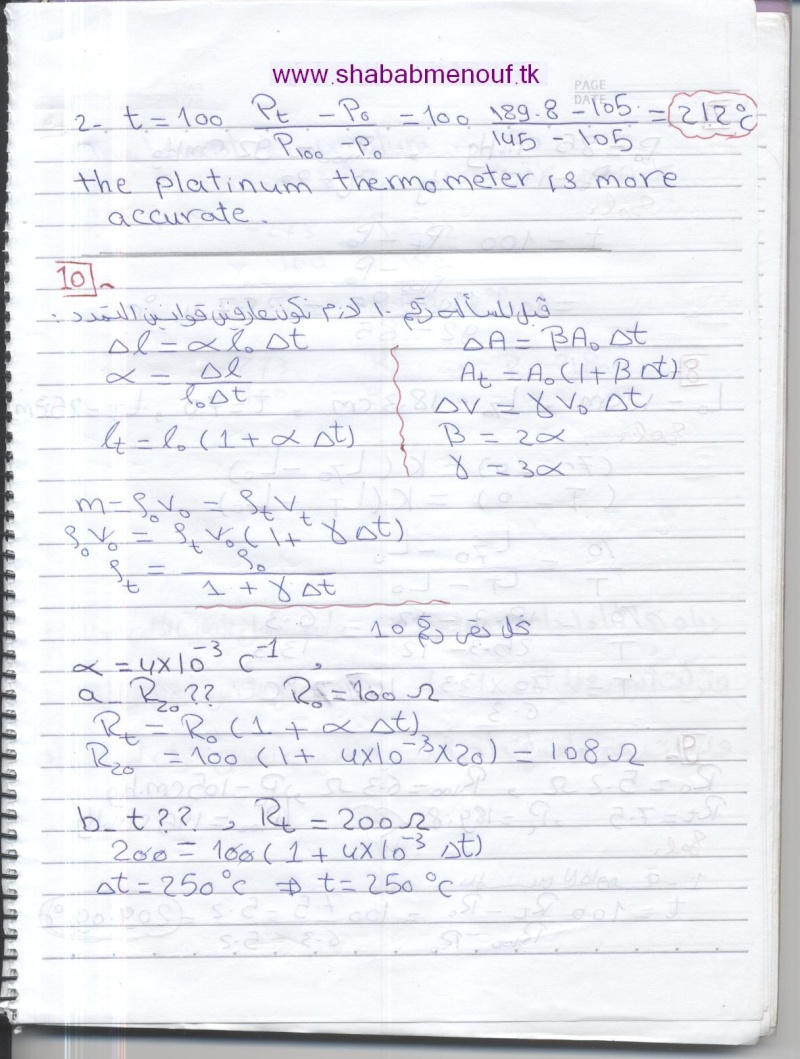 www.shababmenouf.tk
PAGE
DATE
2- t = 100 (Pt - P0)/(P100 - P0) = 100 (189.8 - 105)/(145 - 105) = 212°C
the platinum thermometer is more
accurate.
10-
قبل المسألة رقم 10 لازم نكون عارفين قوانين التمدد :
Δl = α l0 Δt
α = Δl / (l0 Δt)
lt = l0 (1 + α Δt)
ΔA = βA0 Δt
At = A0 (1 + β Δt)
ΔV = γ V0 Δt
β = 2α
γ = 3α
m = ρ0 V0 = ρt Vt
ρ0 V0 = ρt V0 (1 + γ Δt)
ρt = ρ0 / (1 + γ Δt)
10
α = 4×10⁻³ C⁻¹ ,
a - R20 ?? R0 = 100 Ω
Rt = R0 (1 + α Δt)
R20 = 100 (1 + 4×10⁻³×20) = 108 Ω
b - t ?? , Rt = 200 Ω
200 = 100 (1 + 4×10⁻³ Δt)
Δt = 250 °C ⇒ t = 250 °C